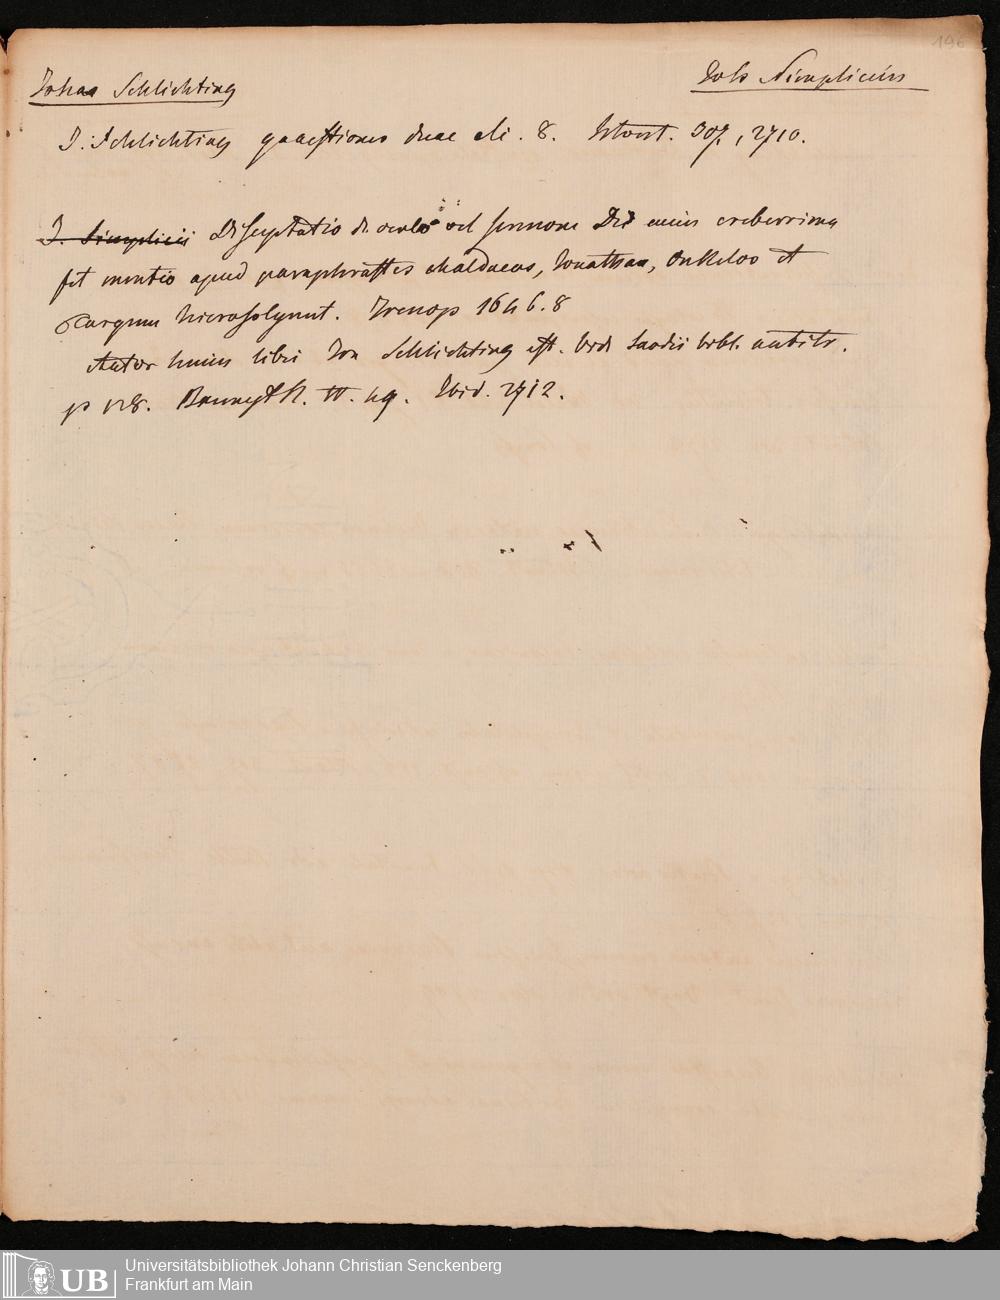 196
Johan Schlichting
Joh Simplicius
J. Schlichting quaestiones duae etc. 8. Worst. 307, 2710.
J. Simplicii Disceptatio de verbo vel sermone Dei cuius creberrima
fit mentio apud paraphrastes chaldaeos, Jonathan, Onkelos et
Targum hierosolymit. Irenop 1646. 8
Autor huius libri Jon Schlichting est. vid Sandii bibl. antitr.
p 128. T. 49. Ibid. 2712.
UB
Universitätsbibliothek Johann Christian Senckenberg
Frankfurt am Main